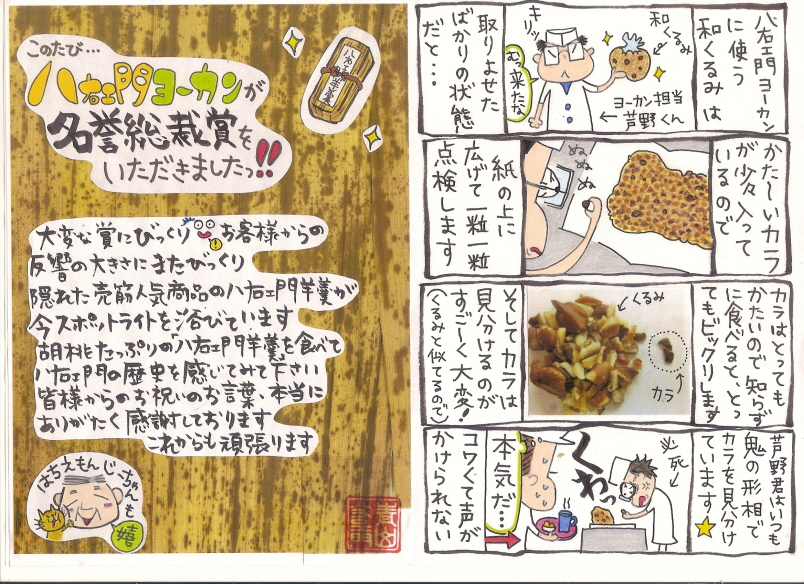 このたび…
八右ェ門ヨーカンが
名誉総裁賞を
いただきましたっ!!
大変な賞にびっくり お客様からの
反響の大きさにまたびっくり
隠れた売筋人気商品の八右ェ門羊羹が
今スポットライトを浴びています
胡桃たっぷりの八右ェ門羊羹を食べて
八右ェ門の歴史を感じてみて下さい
皆様からのお祝いのお言葉、本当に
ありがたく感謝しております
これからも頑張ります
はちえもんじーちゃんも
嬉
八右ェ門ヨーカン
に使う
和くるみは
和くるみ
キリッ
むっ来たな
ヨーカン担当
芦野くん
取りよせた
ばかりの状態
だと…
かた〜いカラ
が少々入って
いるので
ぬぬぬ
紙の上に
広げて一粒一粒
点検します
カラはとっても
かたいので知らず
に食べると、とっ
てもビックリします
くるみ
カラ
そしてカラは
見分けるのが
すご〜く大変!
(くるみと似てるので)
芦野君はいつも
鬼の形相で
カラを見分け
ています
必死
くわっ
本気だ…
コワくて声が
かけられない